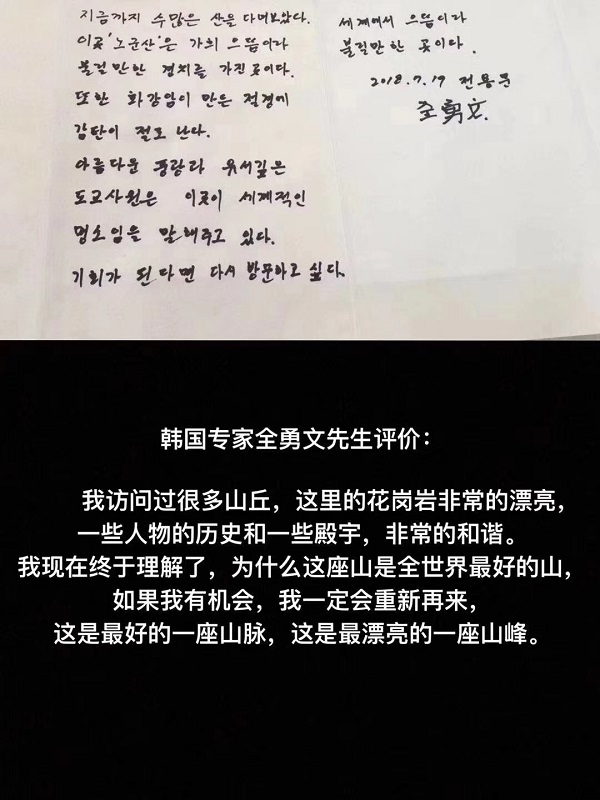 지금까지 수많은 산을 다녀보았다.
이곳 '노군산'은 가희 으뜸이라
불릴만한 경치를 가진곳이다.
또한 화강암이 만든 절경에
감탄이 절로 난다.
아름다운 풍광과 유서깊은
도교사원은 이곳이 세계적인
명소임을 말해주고 있다.
기회가 된다면 다시 방문하고 싶다.
세계에서 으뜸이라
불릴만한 곳이다.
2018.7.19 전용문
全勇文.
韩国专家全勇文先生评价：
我访问过很多山丘，这里的花岗岩非常的漂亮，
一些人物的历史和一些殿宇，非常的和谐。
我现在终于理解了，为什么这座山是全世界最好的山，
如果我有机会，我一定会重新再来，
这是最好的一座山脉，这是最漂亮的一座山峰。